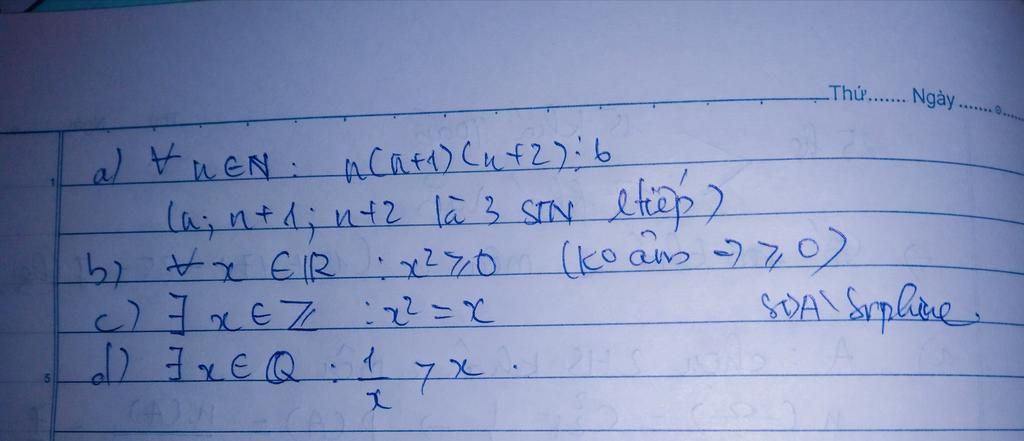 Thứ....... Ngày.......
a) ∀ n ∈ N : n(n+1)(n+2) ⋮ 6
(n; n+1; n+2 là 3 STN ltiếp)
b) ∀ x ∈ R : x² ≥ 0 (ko âm → ≥ 0)
c) ∃ x ∈ Z : x² = x
d) ∃ x ∈ Q : 1/x > x.